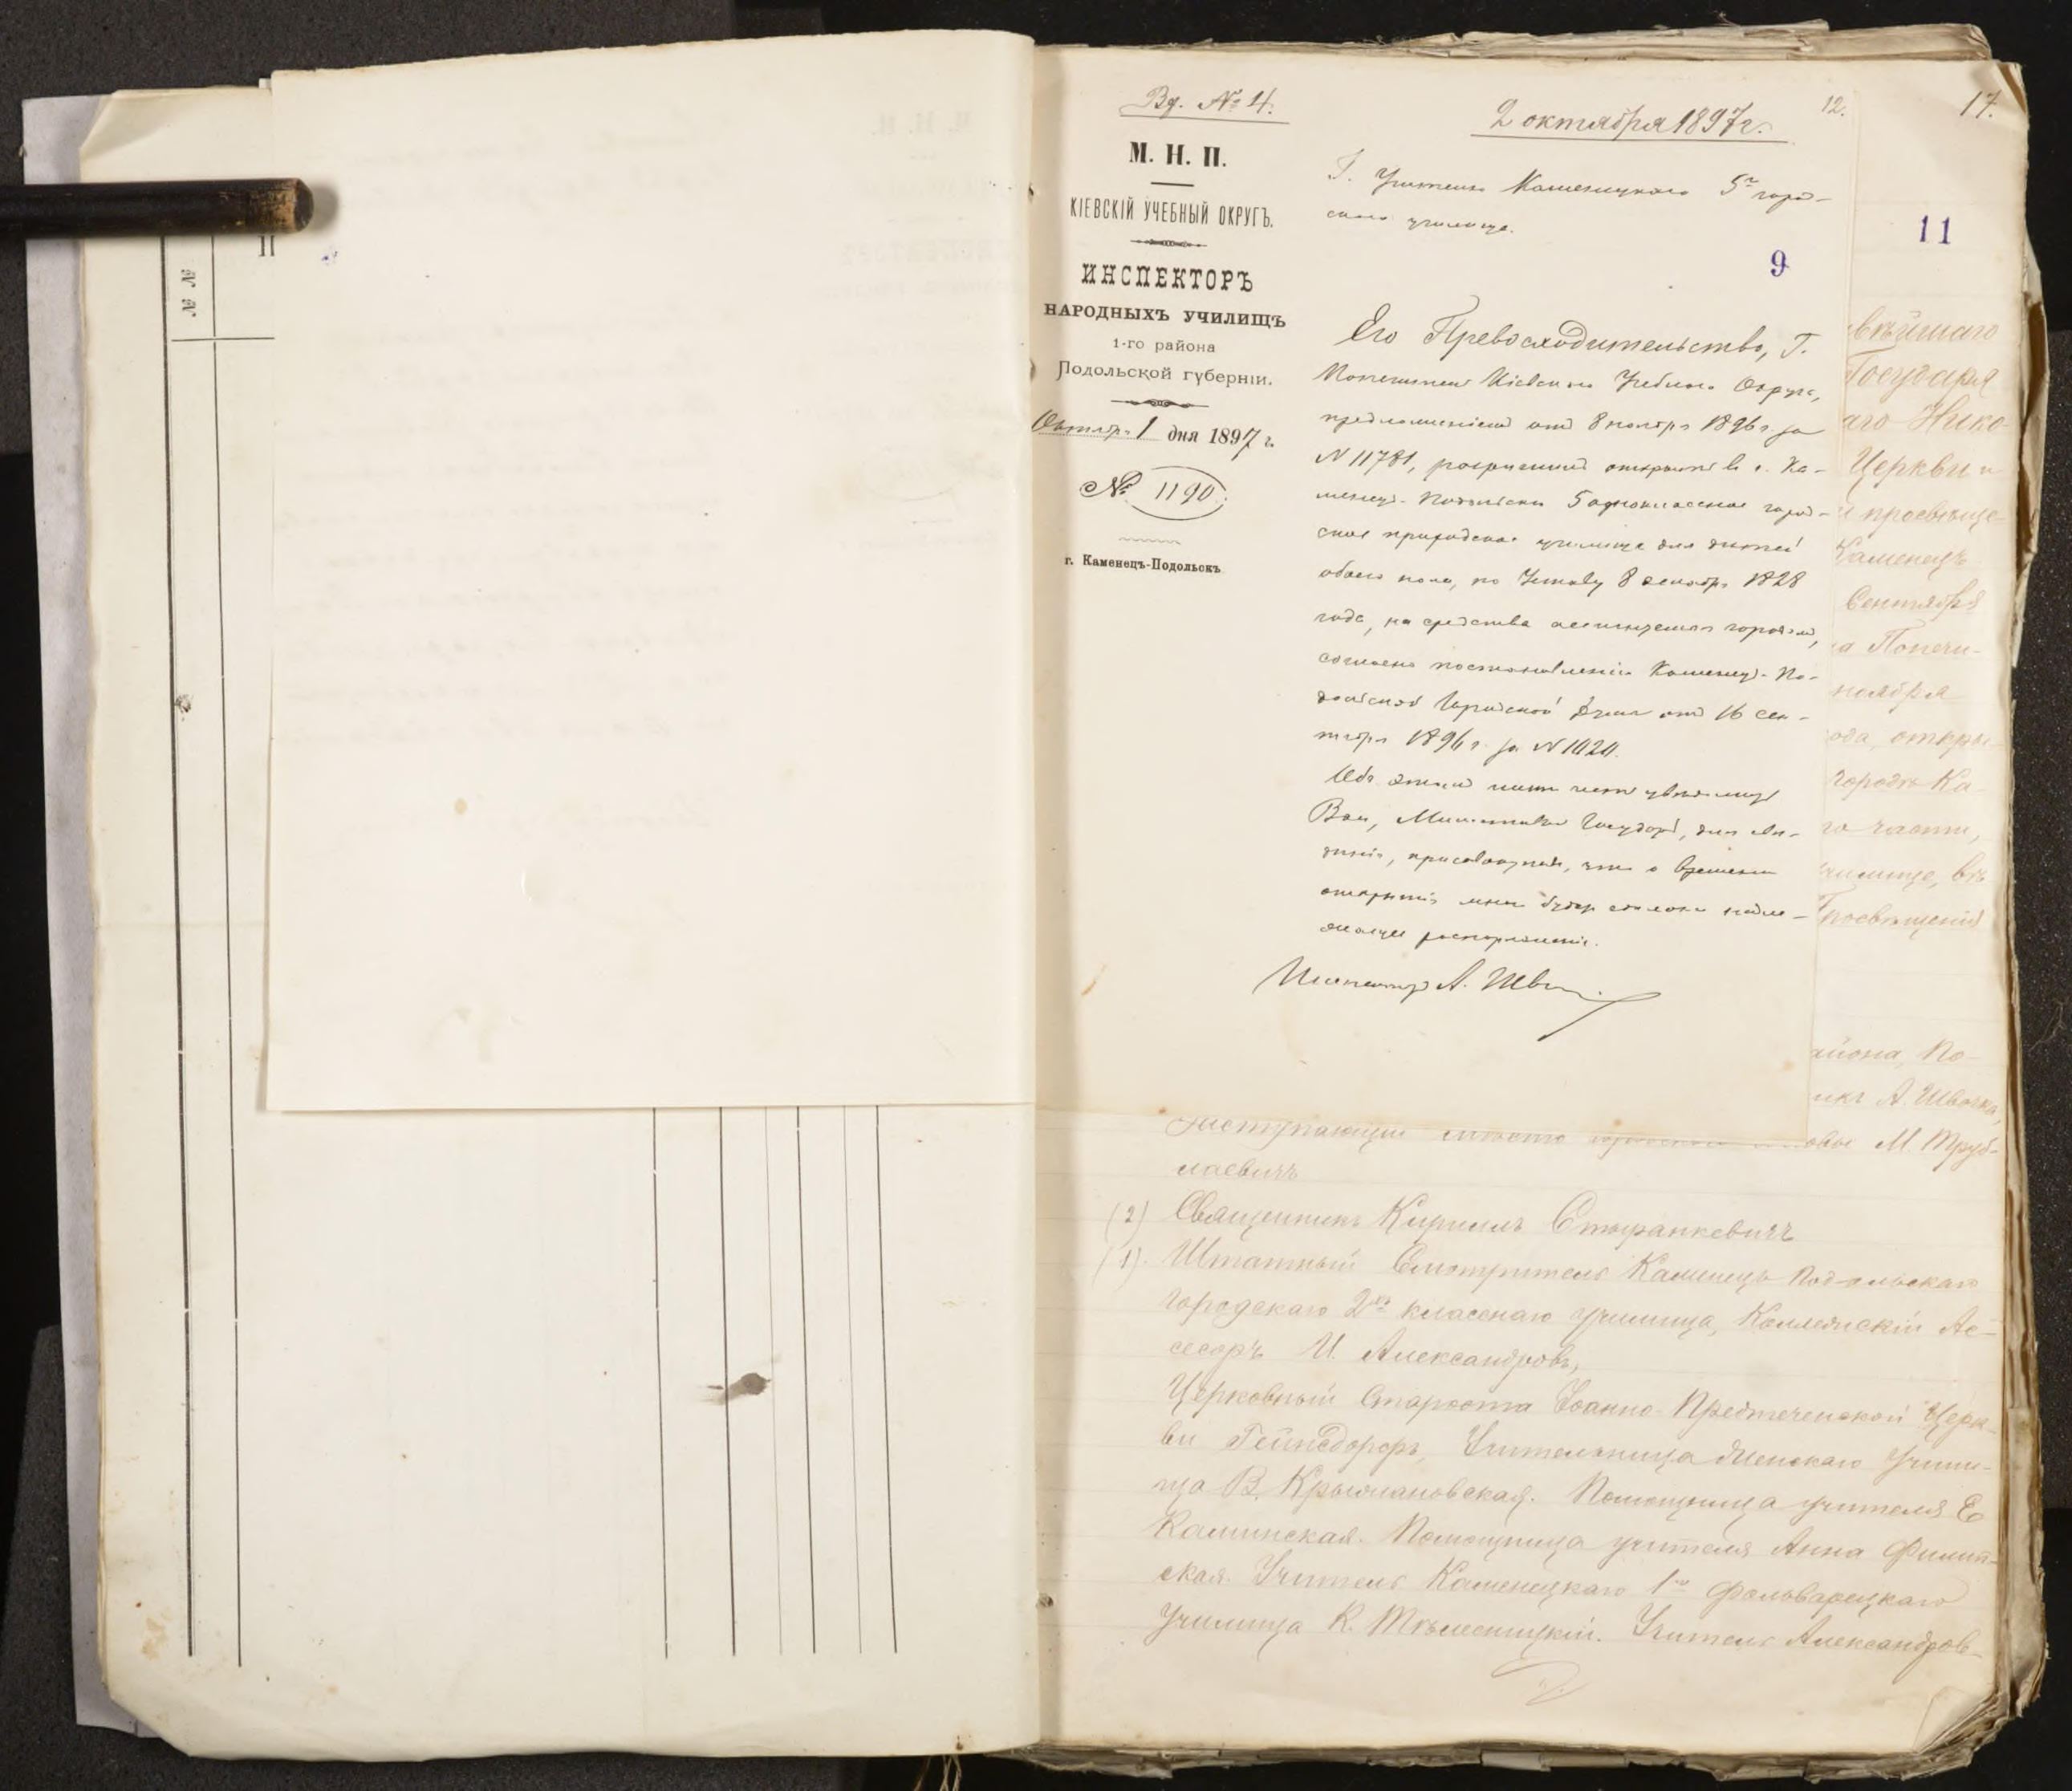 № №
П
Вх. № 4.
2 октября 1897 г.
12.
17.
М. Н. П.
КІЕВСКІЙ УЧЕБНЫЙ ОКРУГЪ.
ИНСПЕКТОРЪ
НАРОДНЫХЪ УЧИЛИЩЪ
1-го района
Подольской губерніи.
Октября 1 дня 1897 г.
№ 1190.
г. Каменецъ-Подольскъ
Г. Учителю Каменецкаго 5го город-
скаго училища.
9
11
Его Превосходительство, Г.
Попечитель Кіевскаго Учебнаго Округа,
предложеніемъ отъ 8 ноября 1896 г. за
№ 11781, разрѣшилъ открыть въ г. Ка-
менец-Подольскѣ 5 одноклассное город-
ское приходское училище для дѣтей
обоего пола, по Уставу 8 декабря 1828
года, на средства ассигнуемыя городомъ,
согласно постановленію Каменец-По-
дольской Городской Думы отъ 16 сен-
тября 1896 г. за № 1020.
Объ этомъ имѣю честь увѣдомить
Васъ, Милостивый Государь, для свѣ-
дѣнія, присовокупляя, что о времени
открытія мною будетъ сдѣлано надле-
жащее распоряженіе.
Инспекторъ А. Шв
вѣйшаго
Государя
аго Нико-
Церкви и
и просвѣще-
Каменецъ-
Сентября
а Попечи-
ноября
ода, откры-
городѣ Ка-
го части,
училище, въ
Просвѣщенія
айона, По-
икъ А. Швачка,
Заступающій мѣсто М. Труб-
лаевичъ
(2) Священникъ Кириллъ Стыранкевичъ
(1). Штатный Смотритель Каменецъ Подольскаго
городскаго 2хъ класснаго училища, Коллежскій Ас-
сесоръ И. Александровъ,
Церковный Староста Іоанно-Предтеченской Церк-
ви Гейнсдорфъ, Учительница Женскаго Учили-
ща В. Крыжановская. Помощница учителя Е
Каминская. Помощница учителя Анна Филип-
ская. Учитель Каменецкаго 1го Фольварецкаго
Училища К. Учитель Александров-